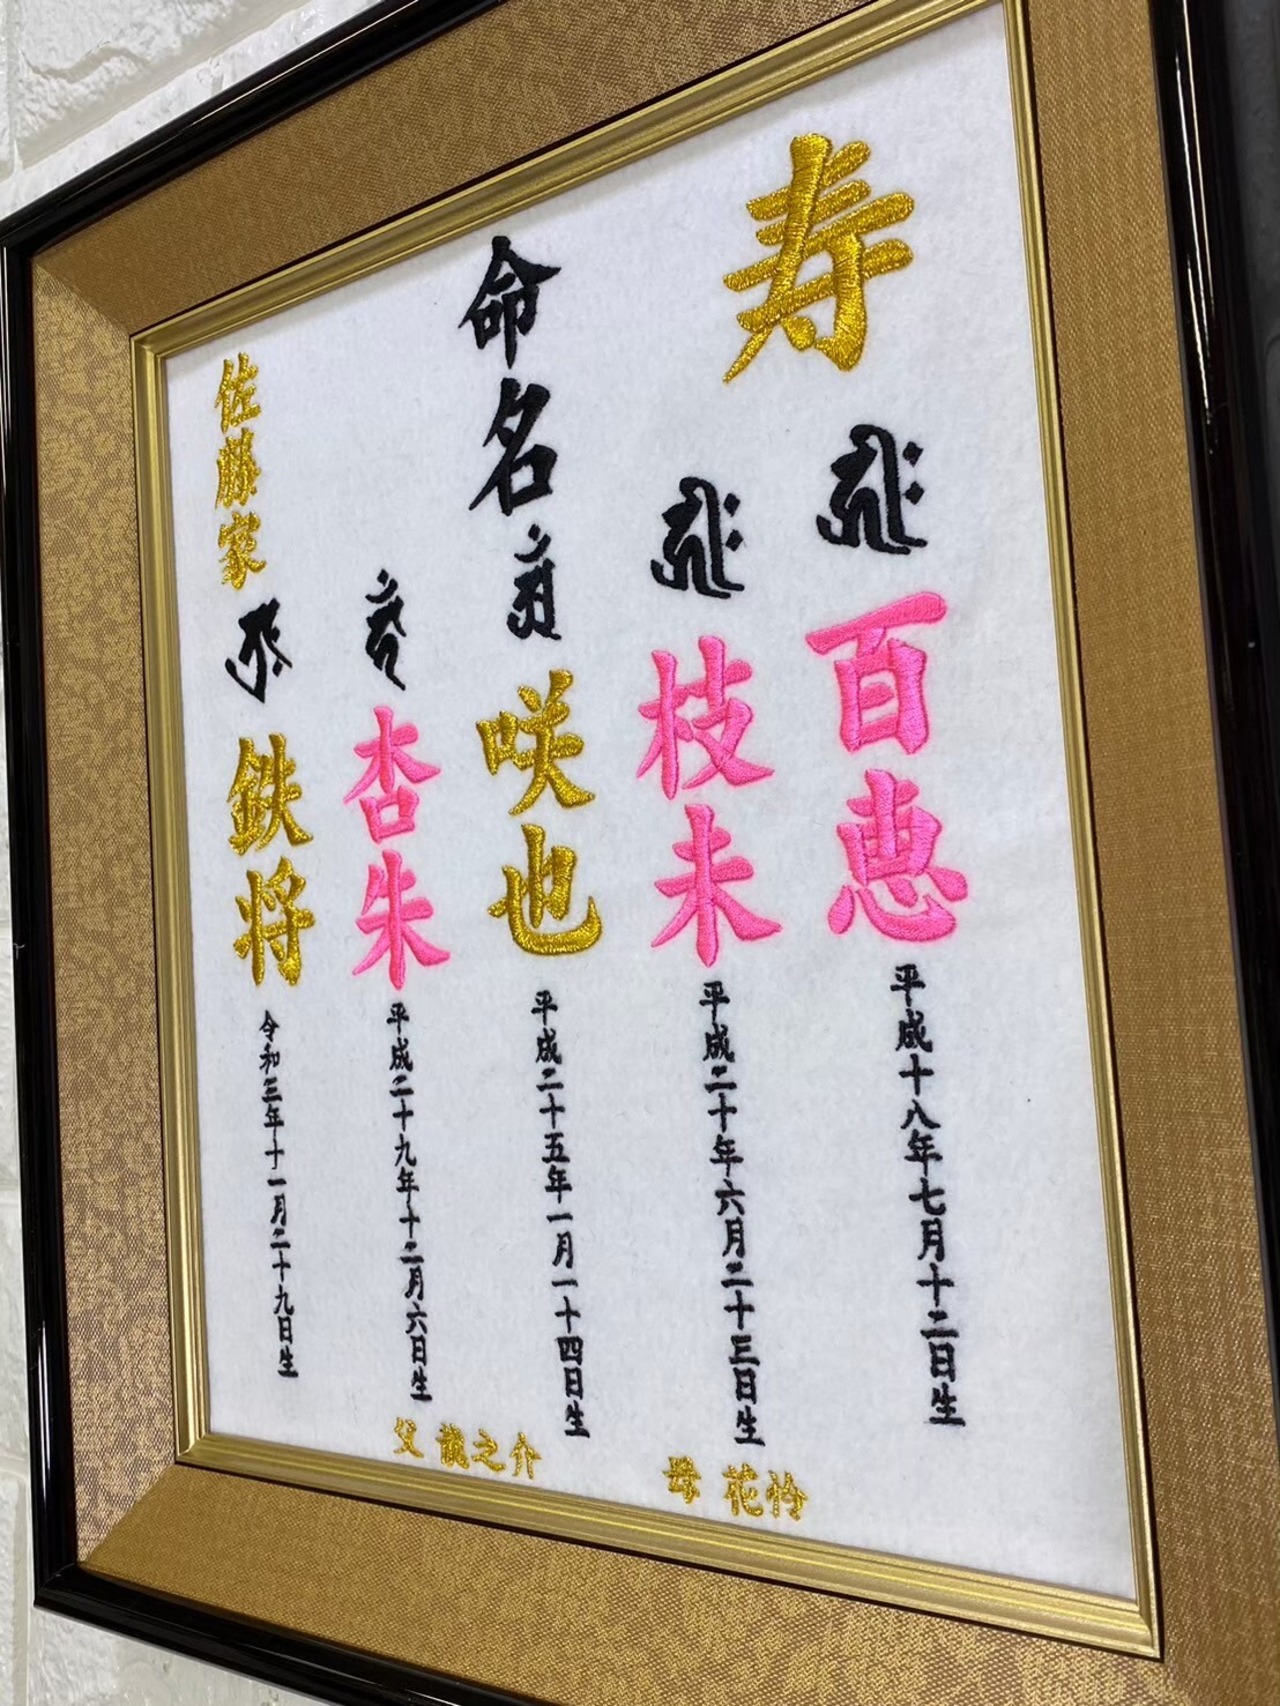 寿
命名
百恵
平成十八年七月十二日生
枝未
平成二十年六月二十三日生
咲也
平成二十五年一月一十四日生
杏朱
平成二十九年十二月六日生
佐藤家
鉄将
令和三年十一月二十九日生
父 龍之介
母 花怜